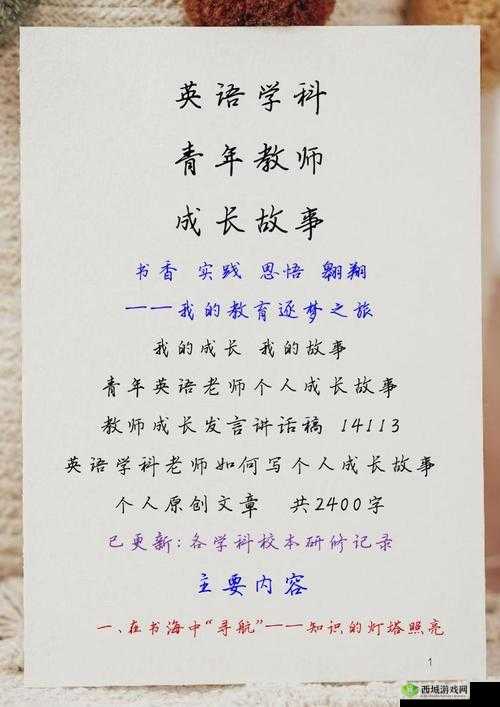 英语学科
青年教师
成长故事
书香 实践 思悟 翱翔
——我的教育逐梦之旅
我的成长 我的故事
青年英语老师个人成长故事
教师成长发言讲话稿 14113
英语学科老师如何写个人成长故事
个人原创文章 共2400字
已更新:各学科校本研修记录
主要内容
一、在书海中“导航”——知识的灯塔照亮
1
西城游戏网